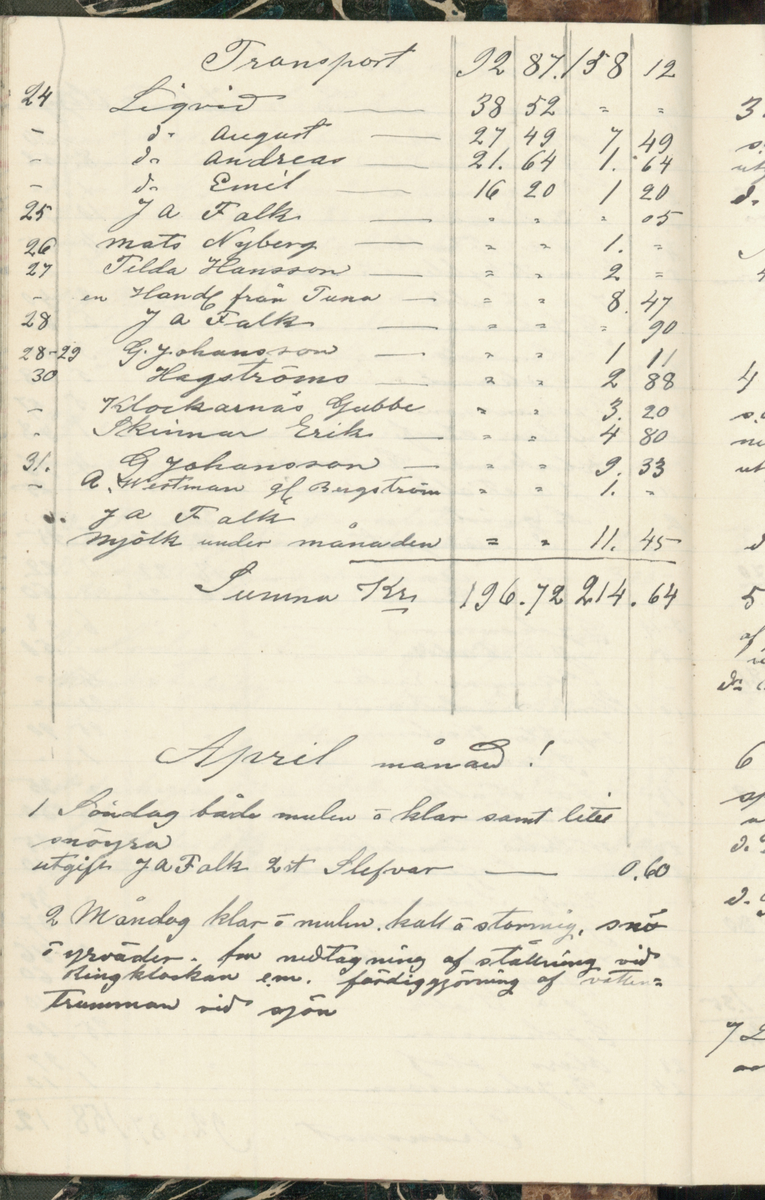 Transport 92 87. 158 12
24 Liqvid 38 52 " "
- d:o August 27 49 7 49
- d:o Andreas 21. 64 1. 64
- d:o Emil 16 20 1 20
25 J A Falk " " " 05
26 Mats Nyberg " " 1. "
27 Tilda Hansson " " 2 "
- en Handl från Tuna " " 8. 47
28 J A Falk " " " 90
28-29 G. Johansson " " 1 11
30 Hagströms " " 2 88
- Klockarnäs Gubbe " " 3. 20
- Skinnar Erik " " 4 80
31. G Johansson " " 9. 33
- A. Westman gf Bergström " " 1. "
J A Falk
Mjölk under månaden " " 11. 45
Summa Kr 196.72 214.64
April månad!
1 Söndag både mulen o klar samt lite
snöyra
utgift J A Falk 2 st Slefvar 0.60
2 Måndag klar o mulen. kall o stormig, snö
o yrväder. fm nedtagning af ställning vid
Ringklockan em. färdiggjörning af vatten=
trumman vid sjön
3.
4
5
6
7